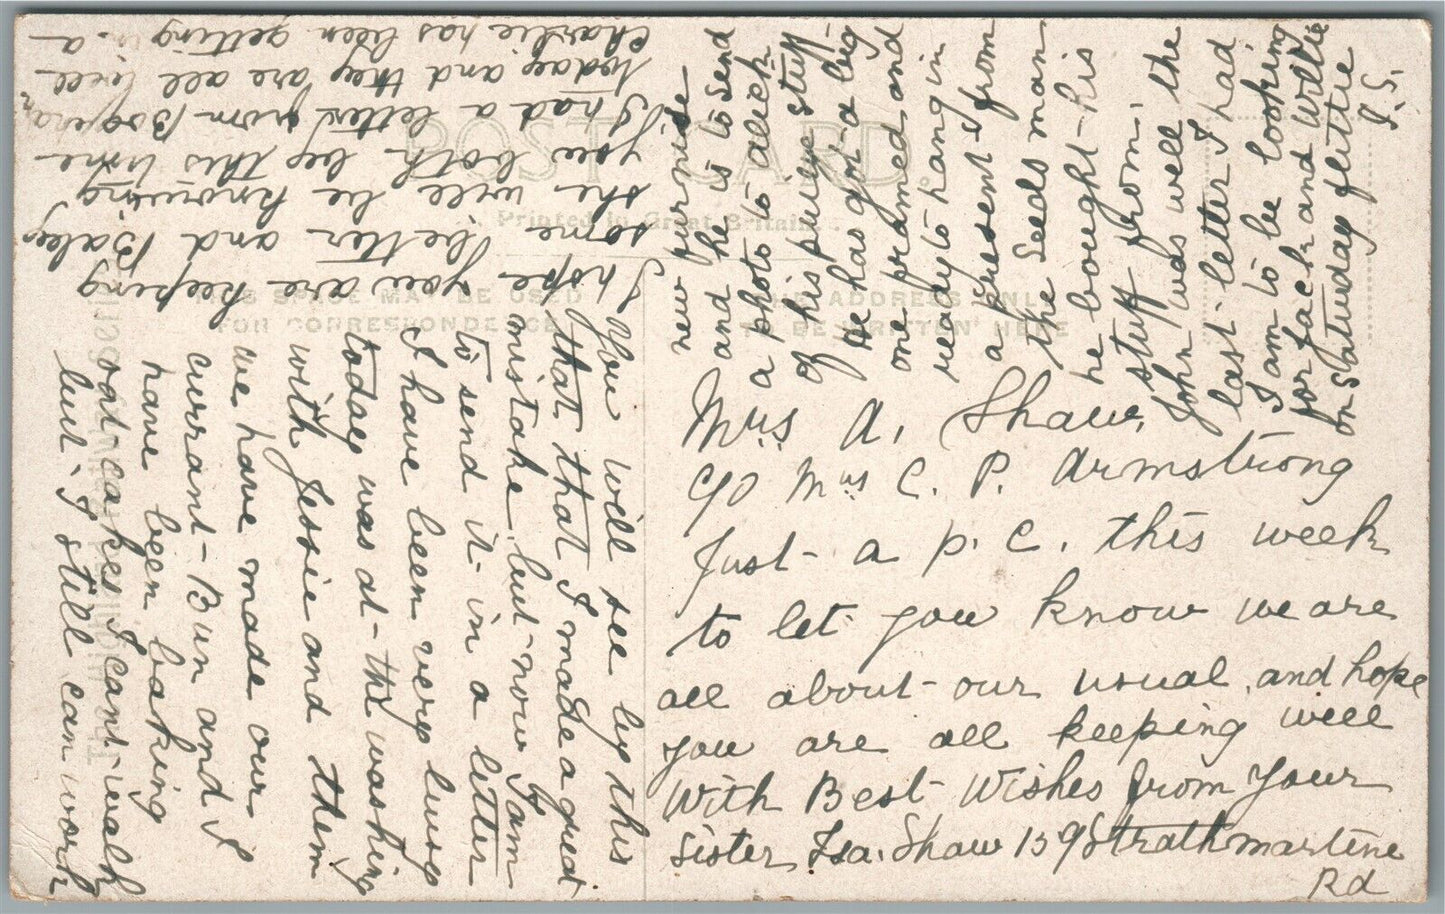 POST CARD
Printed in Great Britain.
THIS SPACE MAY BE USED
FOR CORRESPONDENCE
THE ADDRESS ONLY
TO BE WRITTEN HERE
Mrs A. Shaw,
c/o Mrs C. P. Armstrong
Just a p.c. this week
to let you know we are
all about our usual, and hope
you are all keeping well
With Best Wishes from Your
Sister Isa. Shaw 159 Strathmartine
Rd
You will see by this
that that I made a great
mistake but now I am
to send it in a letter
I have been very busy
today was at the washing
with Jessie and them
we have made our
currant Bun and I
have been baking
oat cakes I cant walk
but I still can work
I hope you are keeping
some better and Baby
she will be knowing
you both by this time
I had a letter from
today and they are all well
Charlie has been getting in a
new
and he is to send
a photo to Alick
of his
he has got a big
one framed and
ready to hang in
a present from
the Seeds man
he bought his
stuff from.
John was well the
last letter I had
I am to be looking
for Jack and Willie
on Saturday
I.S.